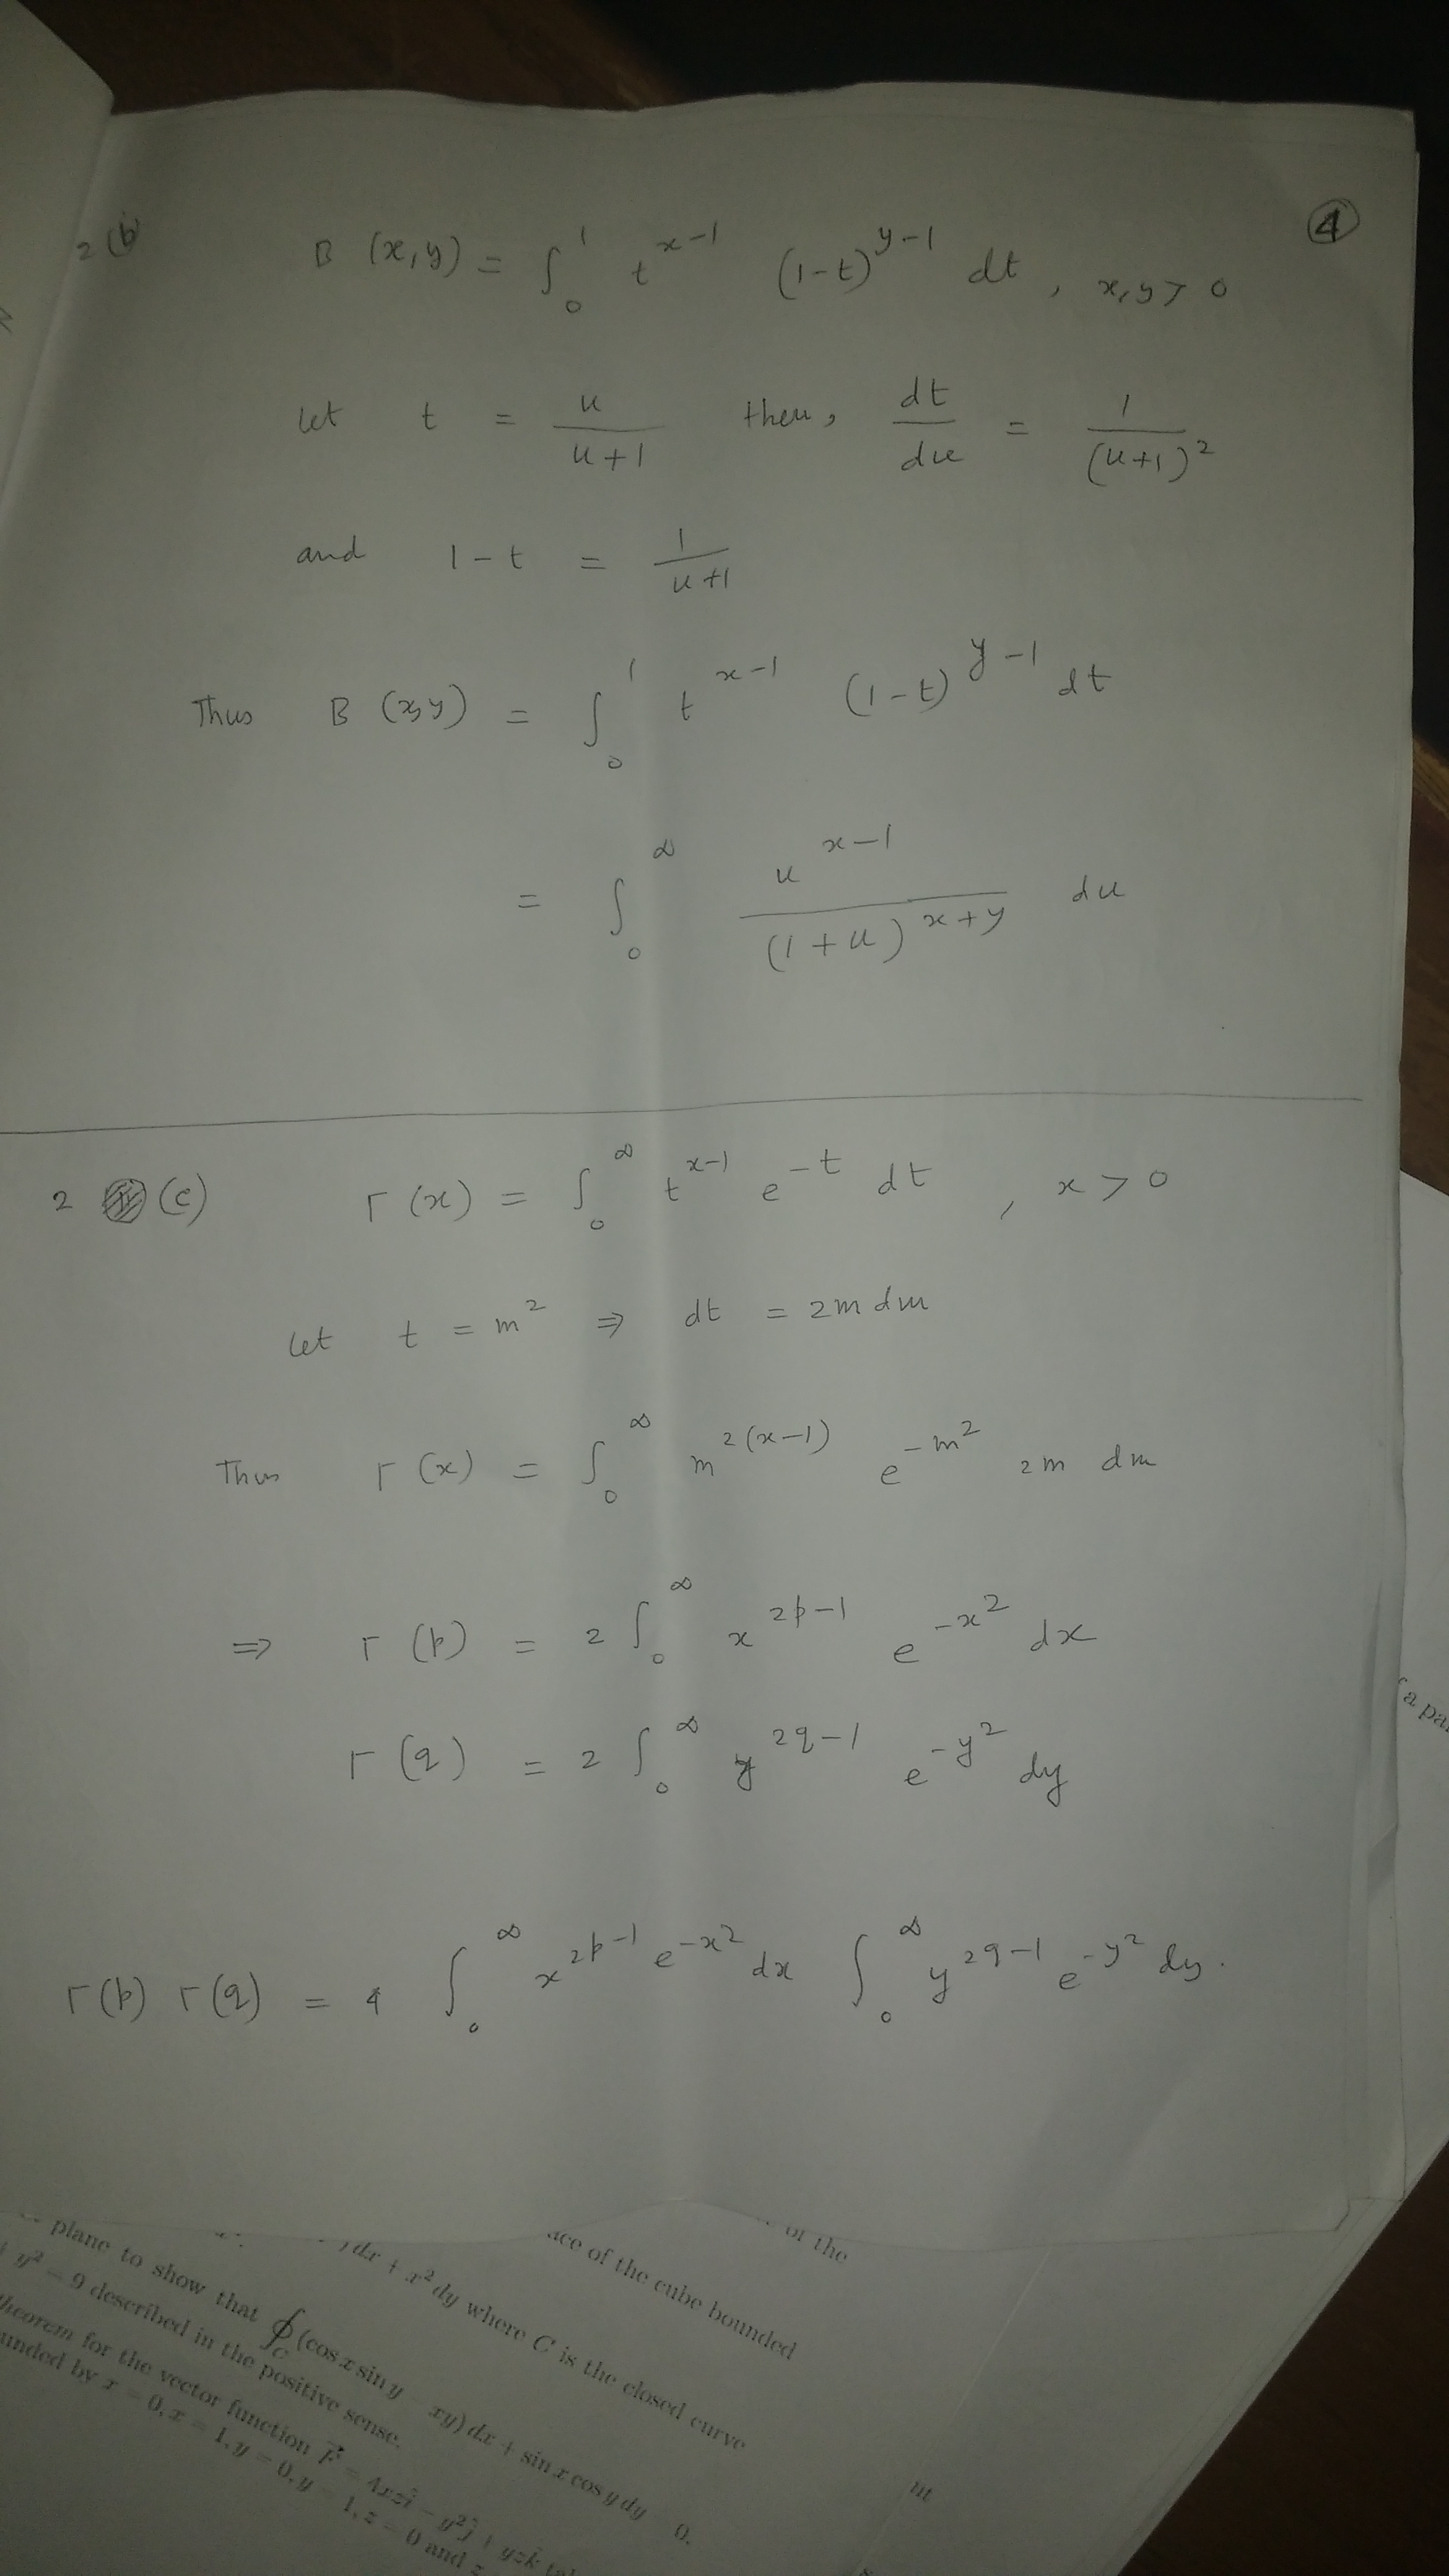 ④
2 (b) B (x,y) = ∫₀¹ t^{x-1} (1-t)^{y-1} dt , x,y > 0
let t = u/(u+1) then, dt/du = 1/(u+1)²
and 1-t = 1/(u+1)
Thus B (x,y) = ∫₀¹ t^{x-1} (1-t)^{y-1} dt
= ∫₀^∞ u^{x-1}/(1+u)^{x+y} du
2 (c) Γ(x) = ∫₀^∞ t^{x-1} e^{-t} dt , x > 0
Let t = m² ⇒ dt = 2m dm
Thus Γ(x) = ∫₀^∞ m^{2(x-1)} e^{-m²} 2m dm
⇒ Γ(p) = 2 ∫₀^∞ x^{2p-1} e^{-x²} dx
Γ(q) = 2 ∫₀^∞ y^{2q-1} e^{-y²} dy
Γ(p) Γ(q) = 4 ∫₀^∞ x^{2p-1} e^{-x²} dx ∫₀^∞ y^{2q-1} e^{-y²} dy.
a pa
of the
ace of the cube bounded
)dx + x² dy where C is the closed curve
plane to show that ∮_C (cos x sin y xy) dx + sin x cos y dy 0.
y² 9 described in the positive sense.
theorem for the vector function F⃗ = 4xzî - y²ĵ + yzk̂
unded by x = 0, x = 1, y = 0, y = 1, z = 0 and z